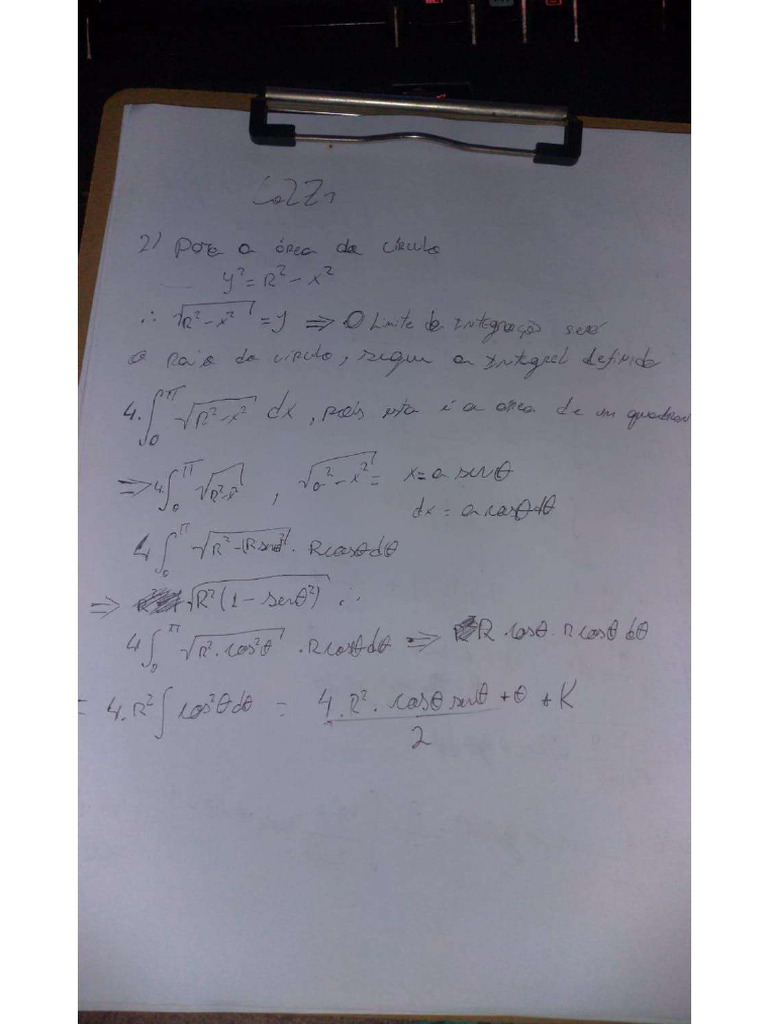 2) Para a área do círculo
y² = R² - x²
∴ √(R² - x²) = y ⇒ O Limite de integração será
o raio do círculo, segue a integral definida
4. ∫₀^π √(R² - x²) dx, pois esta é a área de um quadran
⇒ 4. ∫₀^π √(R² - x²), √(a² - x²) = x = a senθ
dx = a cosθ dθ
4 ∫₀^π √(R² - (R senθ)²) . R cosθ dθ
⇒ √(R² (1 - senθ²)) ∴
4 ∫₀^π √(R² . cos²θ) . R cosθ dθ ⇒ R . cosθ . R cosθ dθ
= 4.R² ∫ cos²θ dθ = (4.R² . cosθ senθ + θ)/2 + K